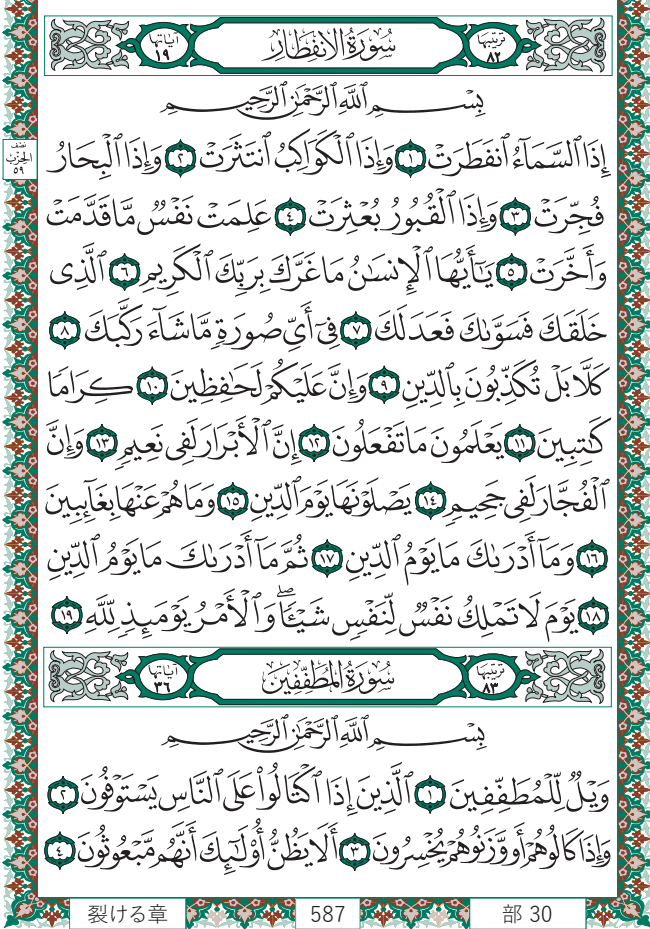 ترتيبها ٨٢ سُورَةُ الانفِطَارِ آياتها ١٩
بِسْمِ ٱللَّهِ ٱلرَّحْمَٰنِ ٱلرَّحِيمِ
نصف الحزب ٥٩
إِذَا ٱلسَّمَآءُ ٱنفَطَرَتْ ١ وَإِذَا ٱلْكَوَاكِبُ ٱنتَثَرَتْ ٢ وَإِذَا ٱلْبِحَارُ
فُجِّرَتْ ٣ وَإِذَا ٱلْقُبُورُ بُعْثِرَتْ ٤ عَلِمَتْ نَفْسٌ مَّا قَدَّمَتْ
وَأَخَّرَتْ ٥ يَٰٓأَيُّهَا ٱلْإِنسَٰنُ مَا غَرَّكَ بِرَبِّكَ ٱلْكَرِيمِ ٦ ٱلَّذِى
خَلَقَكَ فَسَوَّىٰكَ فَعَدَلَكَ ٧ فِىٓ أَىِّ صُورَةٍ مَّا شَآءَ رَكَّبَكَ ٨
كَلَّا بَلْ تُكَذِّبُونَ بِٱلدِّينِ ٩ وَإِنَّ عَلَيْكُمْ لَحَٰفِظِينَ ١٠ كِرَامًا
كَٰتِبِينَ ١١ يَعْلَمُونَ مَا تَفْعَلُونَ ١٢ إِنَّ ٱلْأَبْرَارَ لَفِى نَعِيمٍ ١٣ وَإِنَّ
ٱلْفُجَّارَ لَفِى جَحِيمٍ ١٤ يَصْلَوْنَهَا يَوْمَ ٱلدِّينِ ١٥ وَمَا هُمْ عَنْهَا بِغَآئِبِينَ
١٦ وَمَآ أَدْرَىٰكَ مَا يَوْمُ ٱلدِّينِ ١٧ ثُمَّ مَآ أَدْرَىٰكَ مَا يَوْمُ ٱلدِّينِ
١٨ يَوْمَ لَا تَمْلِكُ نَفْسٌ لِّنَفْسٍ شَيْـًٔا ۖ وَٱلْأَمْرُ يَوْمَئِذٍ لِّلَّهِ ١٩
ترتيبها ٨٣ سُورَةُ المُطَفِّفِينَ آياتها ٣٦
بِسْمِ ٱللَّهِ ٱلرَّحْمَٰنِ ٱلرَّحِيمِ
وَيْلٌ لِّلْمُطَفِّفِينَ ١ ٱلَّذِينَ إِذَا ٱكْتَالُوا۟ عَلَى ٱلنَّاسِ يَسْتَوْفُونَ ٢
وَإِذَا كَالُوهُمْ أَو وَّزَنُوهُمْ يُخْسِرُونَ ٣ أَلَا يَظُنُّ أُو۟لَٰٓئِكَ أَنَّهُم مَّبْعُوثُونَ ٤
裂ける章 587 部 30